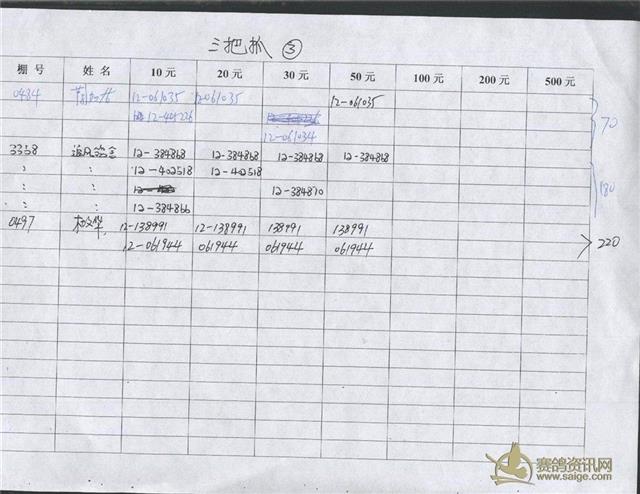 三把抓 ③
棚号 姓名 10元 20元 30元 50元 100元 200元 500元
0434 12-061035 12061035 12-061035
12-401226
12-061034 70
3358 12-384868 12-384868 12-384868 12-384868
: : 12-402518 12-402518
: : 12-384870 180
: : 12-384866
0497 12-138991 12-138991 138991 138991
12-061944 061944 061944 061944 220
赛鸽资讯网
www.saige.com